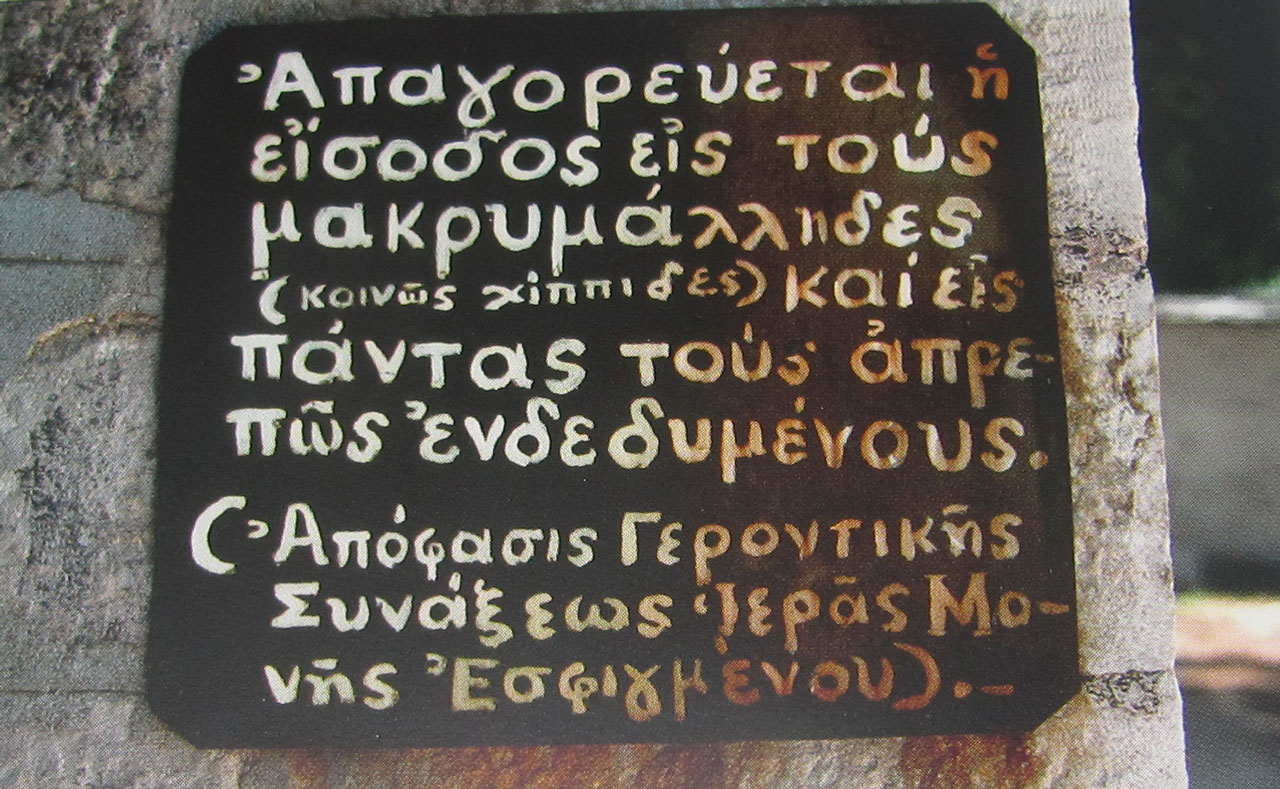 Ἀπαγορεύεται ἡ
εἴσοδος εἰς τούς
μακρυμάλληδες
(κοινῶς χίππιδες) καί εἰς
πάντας τούς ἀπρε-
πῶς ἐνδεδυμένους.
(Ἀπόφασις Γεροντικῆς
Συνάξεως Ἱερᾶς Μο-
νῆς Ἐσφιγμένου).-